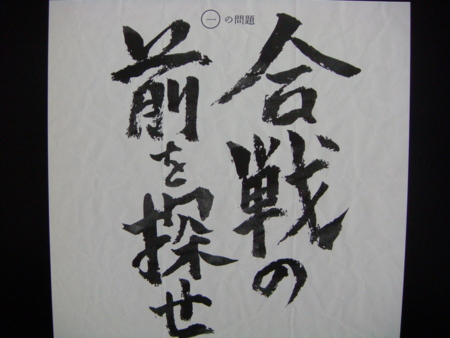 ㊀の問題
合戦の
前を探せ